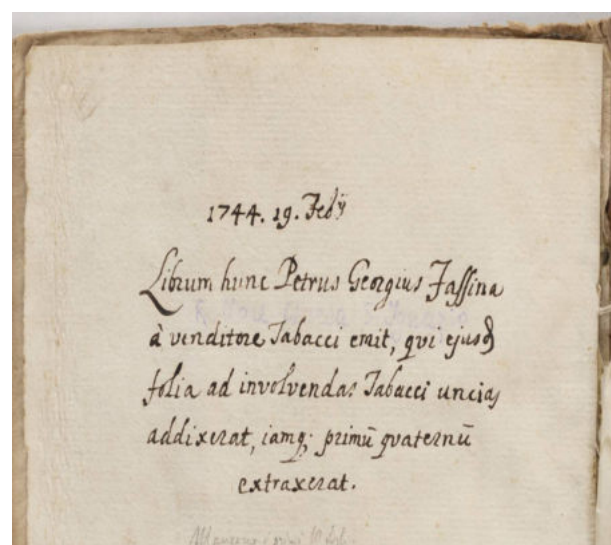 1744. 19. Feb.ÿ
Librum hunc Petrus Georgius Fassina
à venditore Tabacci emit, qvi ejusđ
folia ad involvendas Tabacci uncias
addixerat, iamq; primū qvaternū
extraxerat.